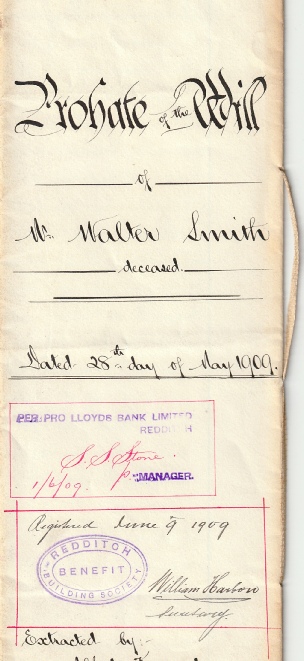 Probate of the Will
of
Mr. Walter Smith
deceased.
Dated 28th day of May 1909.
PER PRO LLOYDS BANK LIMITED
REDDITCH
S. S. Stone
1/6/09. p. MANAGER.
Registered June 9 1909
REDDITCH
BENEFIT
BUILDING SOCIETY
William Harbon
Secretary
Extracted by:-